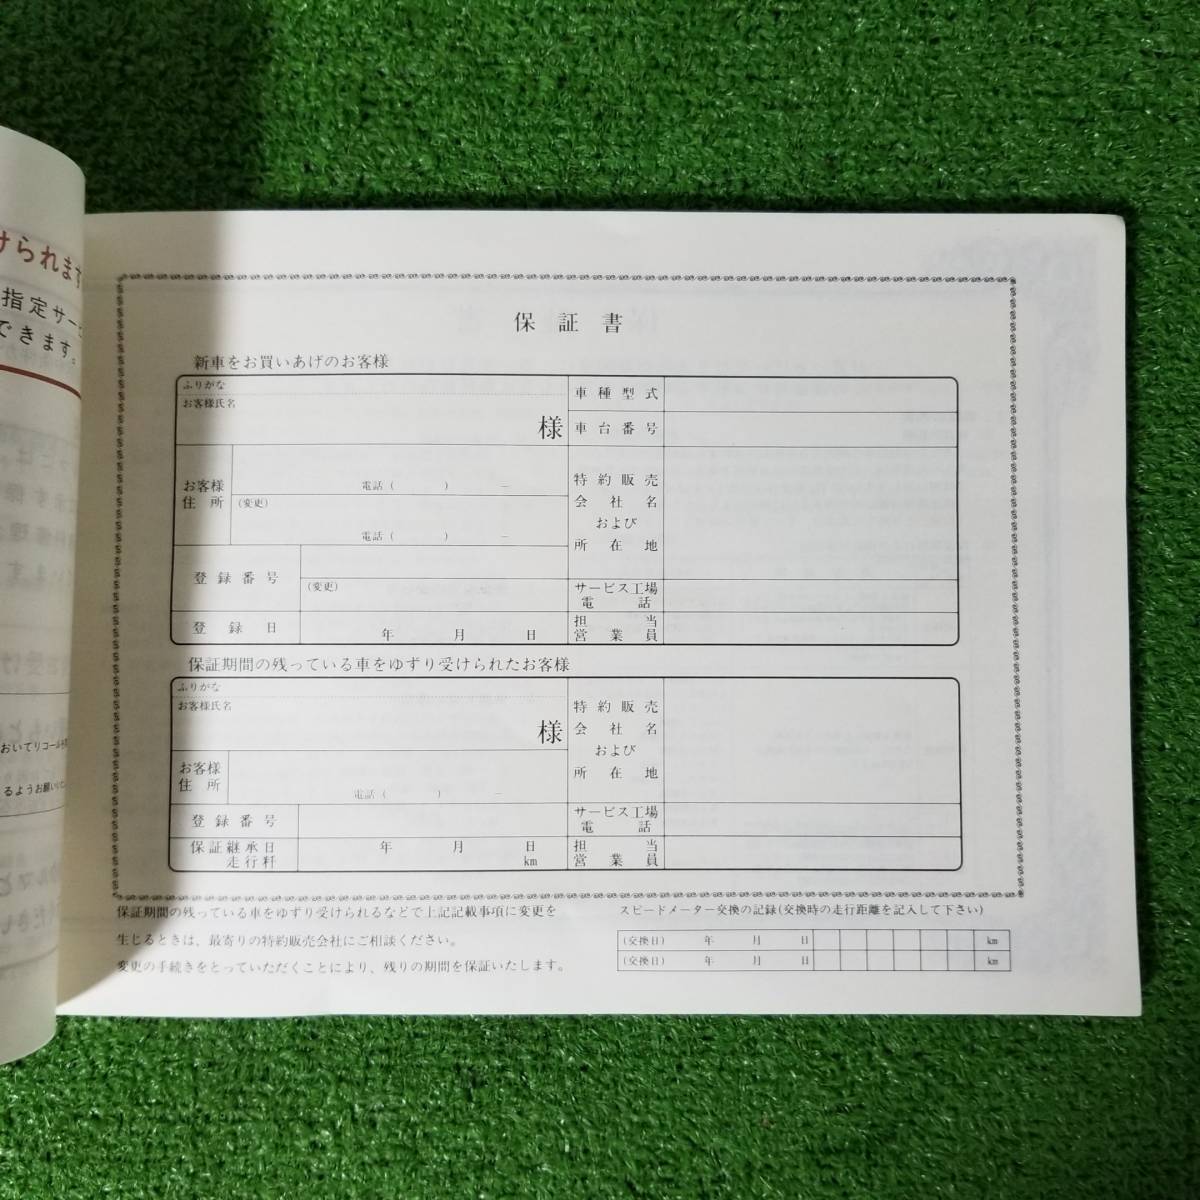 けられます
指定サービ
できます。
おいてリコール
るようお願いいた
保証書
新車をお買いあげのお客様
ふりがな
お客様氏名
様
車種型式
車台番号
お客様
住所
電話（　　）　－
(変更)
電話（　　）　－
特約販売
会社名
および
所在地
登録番号
(変更)
サービス工場
電話
登録日
年　月　日
担当
営業員
保証期間の残っている車をゆずり受けられたお客様
ふりがな
お客様氏名
様
特約販売
会社名
および
所在地
お客様
住所
電話（　　）　－
登録番号
サービス工場
電話
保証継承日
走行粁
年　月　日
km
担当
営業員
保証期間の残っている車をゆずり受けられるなどで上記記載事項に変更を
生じるときは、最寄りの特約販売会社にご相談ください。
変更の手続きをとっていただくことにより、残りの期間を保証いたします。
スピードメーター交換の記録(交換時の走行距離を記入して下さい)
(交換日)　年　月　日　km
(交換日)　年　月　日　km